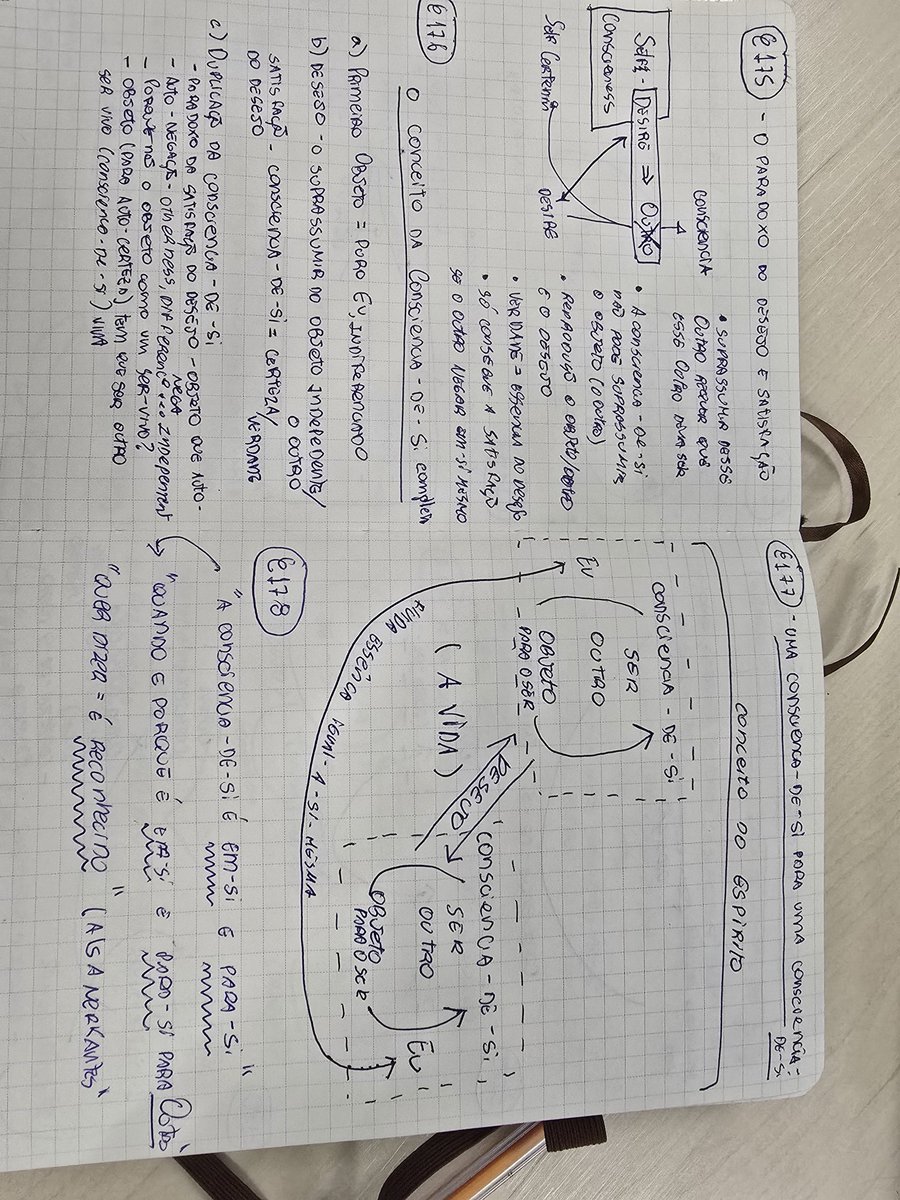 §175 - O PARADOXO DO DESEJO E SATISFAÇÃO
CONSCIENCIA
SELF-
DESIRE ⇒ OUTRO
CONSCIOUSNESS
SELF CERTEINTY
DESIRE
• SUPRASSUMIR DESSE
OUTRO REQUER QUE
ESSE OUTRO POSSA SER
• A CONSCIENCIA-DE-SI
NÃO PODE SUPRASSUMIR
O OBJETO (O OUTRO)
• REPRODUÇÃO O OBJETO/OUTRO
E O DESEJO
• VERDADE = ESSENCIA DO DESEJO
• SÓ CONSEGUE A SATISFAÇÃO
SE O OUTRO NEGAR EM-SI MESMO
§176
O CONCEITO DA CONSCIENCIA-DE-SI COMPLETA
a) PRIMEIRO OBJETO = PURO EU, INDIFERENCIADO
b) DESEJO - O SUPRASSUMIR DO OBJETO INDEPENDENTE/
O OUTRO
SATISFAÇÃO - CONSCIENCIA-DE-SI = CERTEZA/
DO DESEJO VERDADE
c) DUPLICAÇÃO DA CONSCIENCIA-DE-SI
- PARADOXO DA SATISFAÇÃO DO DESEJO - OBJETO QUE AUTO-
NEGA
- AUTO-NEGAÇÃO - OTHERNESS, DIFFERENCE + INDEPENDENT
- PORQUE NÓS O OBJETO COMO UM SER-VIVO?
- OBJETO (PARA AUTO-CERTEZA) TEM QUE SER OUTRO
SER VIVO (CONSCIENCE-DE-SI) VIVA
§177 - UMA CONSCIENCA-DE-SI PARA UMA CONSCIENCIA-
DE-SI
CONCEITO DO ESPÍRITO
CONSCIENCIA-DE-SI
SER
OUTRO
EU
OBJETO
PARA O SER
(A VIDA)
DESEJO
CONSCIENCIA-DE-SI
SER
OUTRO
EU
OBJETO
PARA O SER
FLUIDA ESSENCIA IGUAL-A-SI-MESMA
§178
"A CONSCIENCIA-DE-SI É EM-SI E PARA-SI"
"QUANDO E PORQUE É EM-SI E PARA-SI PARA OUTRO"
"QUER DIZER = É RECONHECIDO" (ALS ANERKANTES"